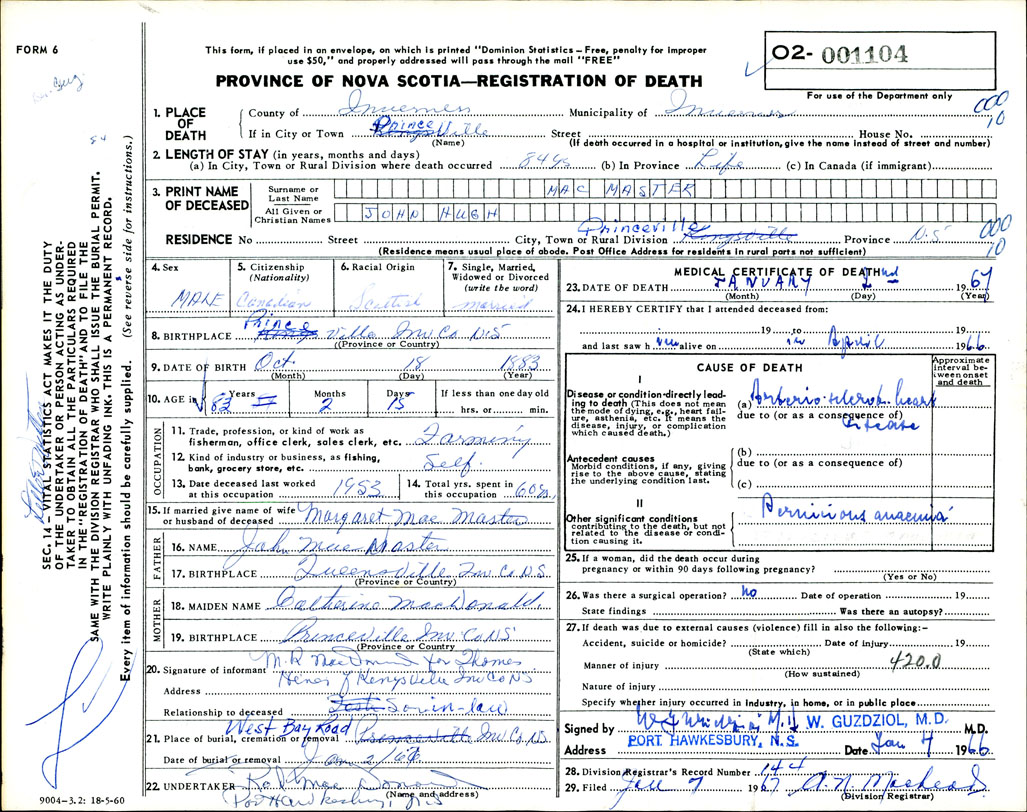 FORM 6
This form, if placed in an envelope, on which is printed "Dominion Statistics – Free, penalty for improper
use $50," and properly addressed will pass through the mail "FREE"
O2- 001104
For use of the Department only
PROVINCE OF NOVA SCOTIA—REGISTRATION OF DEATH
000
10
1. PLACE OF DEATH County of Inverness Municipality of Inverness
If in City or Town Kingsville Princeville Street House No.
(Name) (If death occurred in a hospital or institution, give the name instead of street and number)
2. LENGTH OF STAY (in years, months and days)
(a) In City, Town or Rural Division where death occurred 84 yrs (b) In Province Life (c) In Canada (if immigrant)
3. PRINT NAME OF DECEASED Surname or Last Name MAC MASTER
All Given or Christian Names JOHN HUGH
RESIDENCE No Street City, Town or Rural Division Kingsville Princeville Province N.S
000
10
(Residence means usual place of abode. Post Office Address for residents in rural parts not sufficient)
4. Sex MALE
5. Citizenship (Nationality) Canadian
6. Racial Origin Scottish
7. Single, Married, Widowed or Divorced (write the word) married
8. BIRTHPLACE Prince Ville Inv Co N.S
(Province or Country)
9. DATE OF BIRTH Oct. 18 1883
(Month) (Day) (Year)
10. AGE in Years 83 Months 2 Days 15 If less than one day old hrs. or min.
OCCUPATION
11. Trade, profession, or kind of work as fisherman, office clerk, sales clerk, etc. Farming
12. Kind of industry or business, as fishing, bank, grocery store, etc. Self.
13. Date deceased last worked at this occupation 1953
14. Total yrs. spent in this occupation 60 yrs.
15. If married give name of wife or husband of deceased Margaret Mac Master
FATHER
16. NAME John Mac Master
17. BIRTHPLACE Queensville Inv Co N.S
(Province or Country)
MOTHER
18. MAIDEN NAME Catherine MacDonald
19. BIRTHPLACE Princeville Inv Co NS
(Province or Country
20. Signature of informant M.R MacDonald for Thomas
Address Kingsville Inv Co NS
Relationship to deceased Son in-law
21. Place of burial, cremation or removal West Bay Road Princeville Inv Co. N.S
Date of burial or removal Jan 2/66
22. UNDERTAKER
(Name and address)
Port Hawkesbury, N.S
9004-3.2: 18-5-60
MEDICAL CERTIFICATE OF DEATH
23. DATE OF DEATH JANUARY 2nd 1967
(Month) (Day) (Year)
24. I HEREBY CERTIFY that I attended deceased from:
19 to 19
and last saw him alive on in April 1966.
CAUSE OF DEATH
Approximate interval between onset and death
I
Disease or condition-directly leading to death (This does not mean the mode of dying, e.g., heart failure, asthenia, etc. It means the disease, injury, or complication which caused death.)
(a) Arterio-sclerot. heart
due to (or as a consequence of)
disease
Antecedent causes
Morbid conditions, if any, giving rise to the above cause, stating the underlying condition last.
(b)
due to (or as a consequence of)
(c)
II
Other significant conditions contributing to the death, but not related to the disease or condition causing it.
Pernicious anaemia
25. If a woman, did the death occur during
pregnancy or within 90 days following pregnancy?
(Yes or No)
26. Was there a surgical operation? no Date of operation 19
State findings Was there an autopsy?
27. If death was due to external causes (violence) fill in also the following:–
Accident, suicide or homicide? Date of injury 19
(State which)
Manner of injury 420.0
(How sustained)
Nature of injury
Specify whether injury occurred in Industry, in home, or in public place
Signed by W. GUZDZIOL, M.D. M.D.
Address PORT HAWKESBURY, N.S. Date Jan 4 1966
28. Division Registrar's Record Number 144
29. Filed Jan 7 1967
(Division Registrar)
SEC. 14 – VITAL STATISTICS ACT MAKES IT THE DUTY
OF THE UNDERTAKER OR PERSON ACTING AS UNDER-
TAKER TO OBTAIN ALL THE PARTICULARS REQUIRED
IN THE "REGISTRATION OF DEATH" AND TO FILE THE
SAME WITH THE DIVISION REGISTRAR WHO SHALL ISSUE THE BURIAL PERMIT.
WRITE PLAINLY WITH UNFADING INK. THIS IS A PERMANENT RECORD.
Every item of information should be carefully supplied. (See reverse side for instructions.)